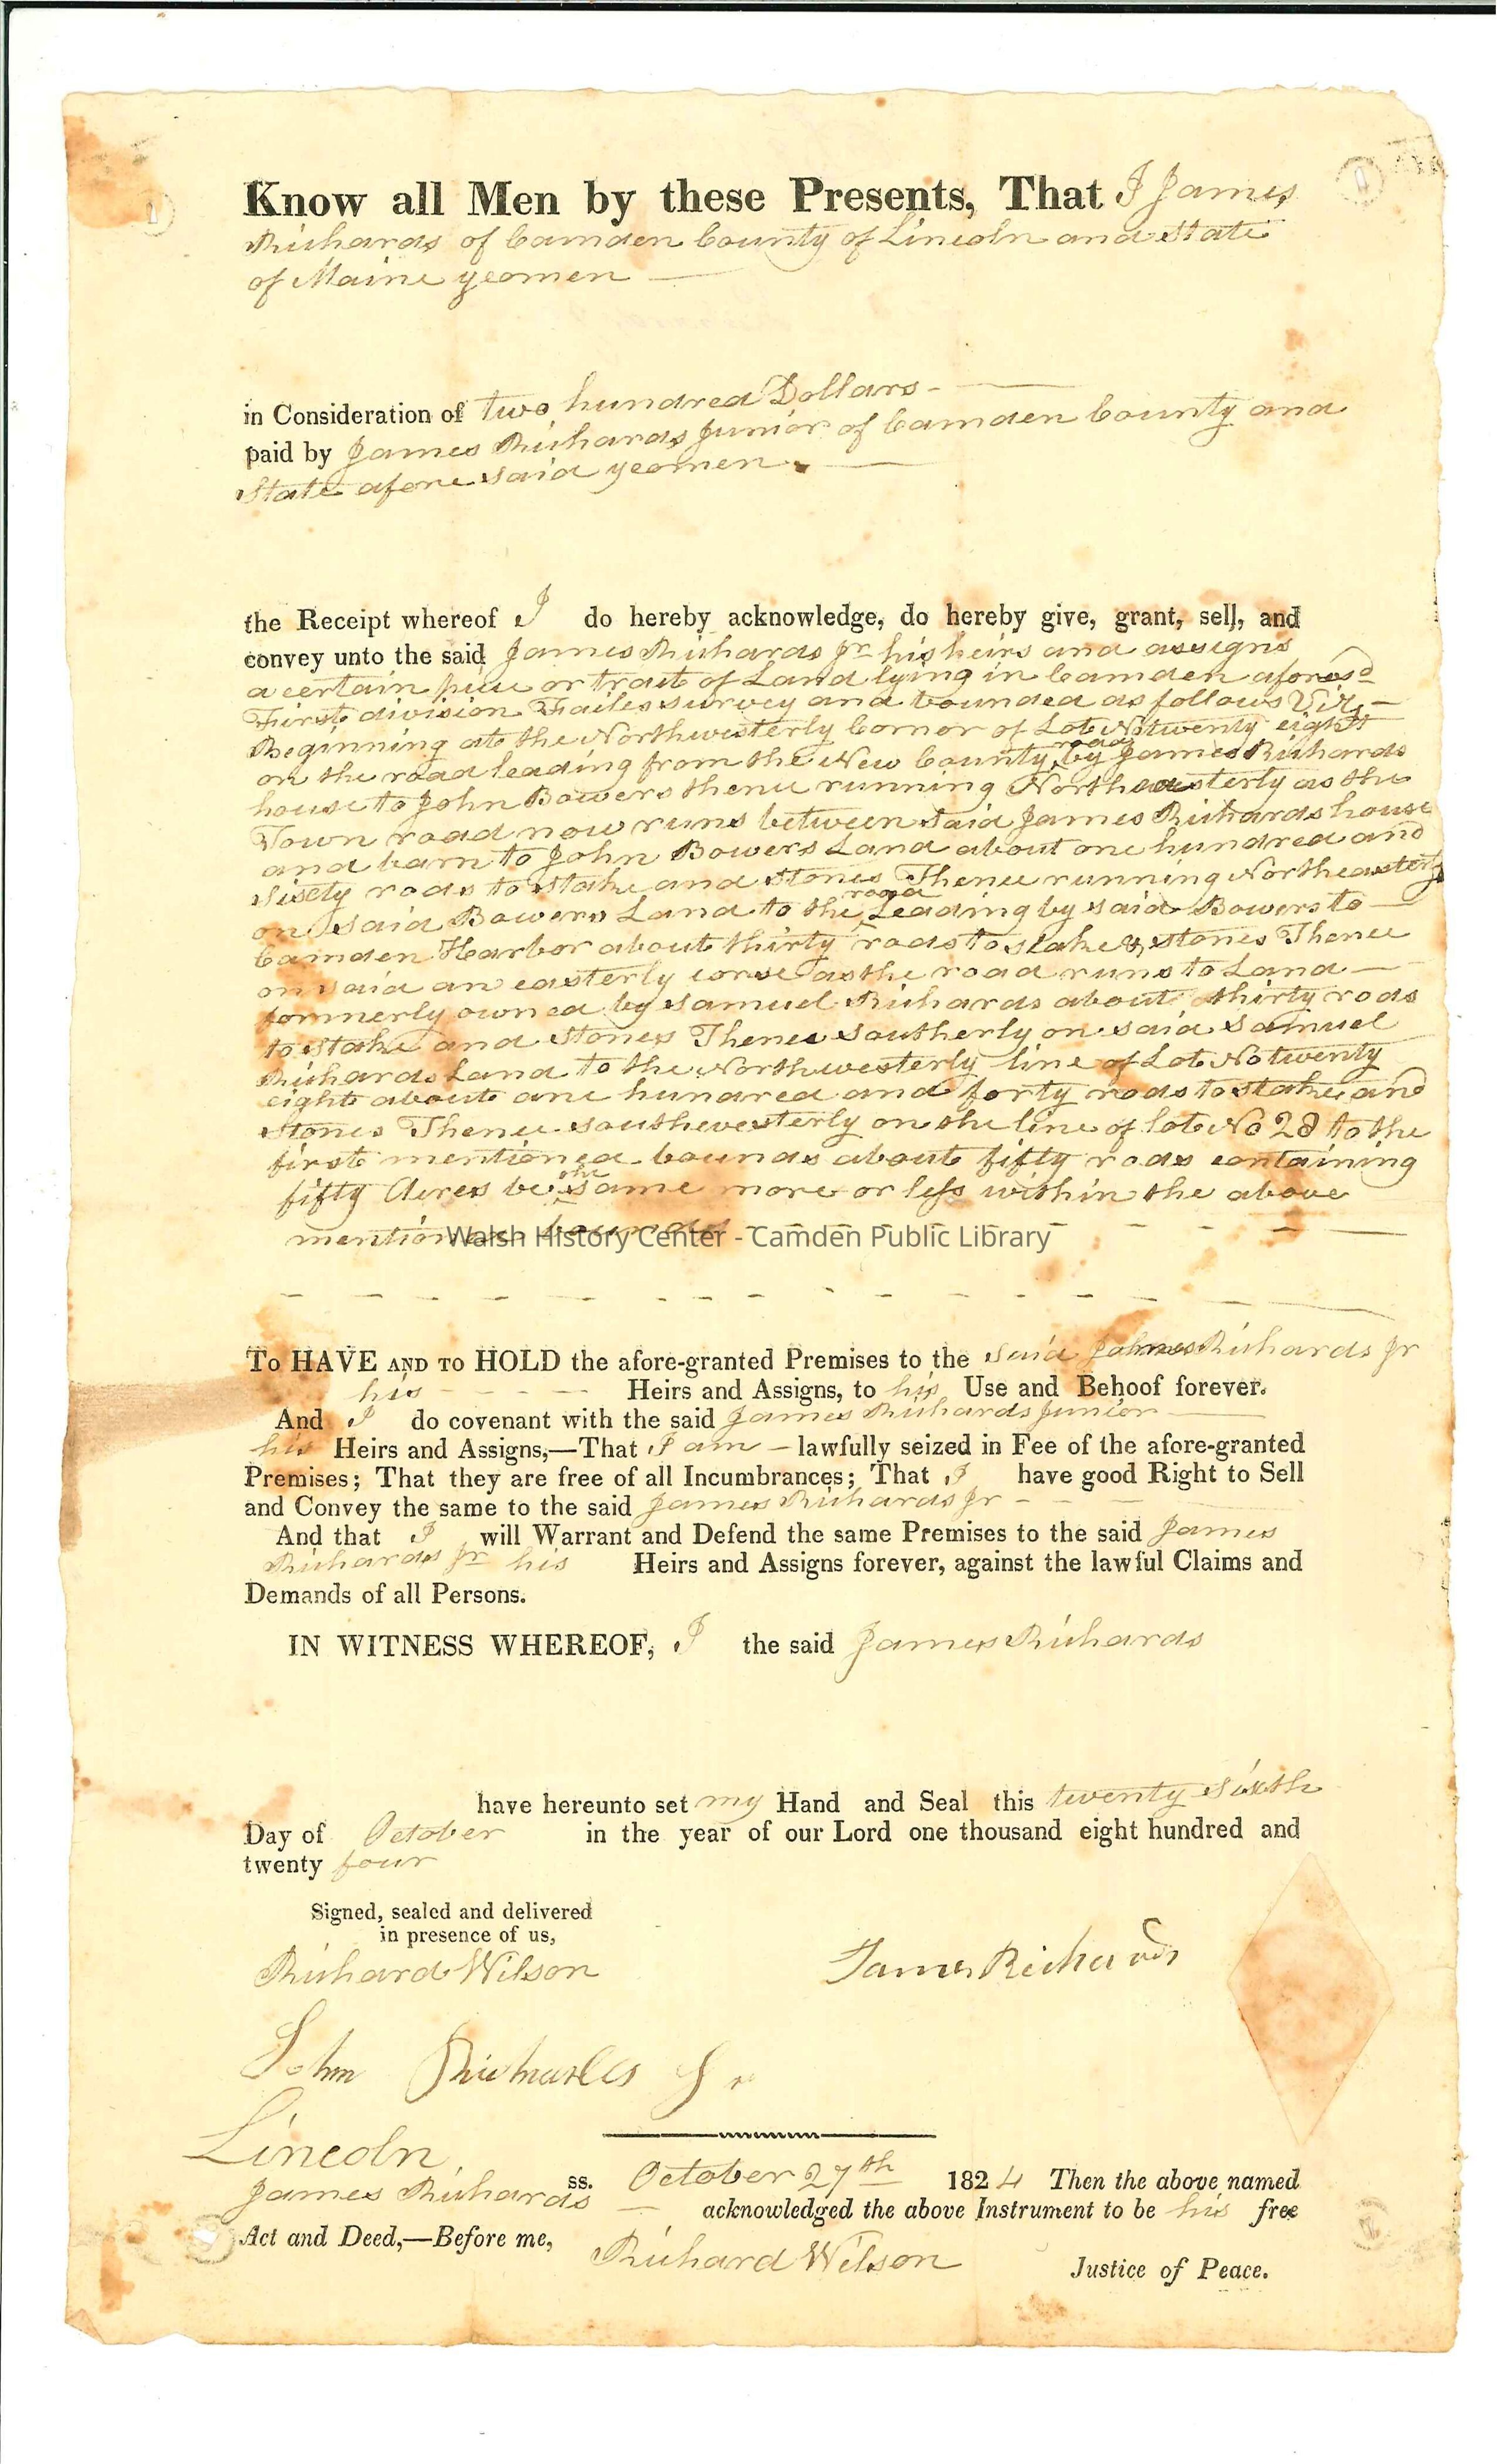 Know all Men by these Presents, That I James
Richards of Camden County of Lincoln and State
of Maine yeomen
in Consideration of two hundred Dollars -
paid by James Richards Junior of Camden County and
State afore said yeomen
the Receipt whereof I do hereby acknowledge, do hereby give, grant, sell, and
convey unto the said James Richards Jr his heirs and assigns
a certain piece or tract of Land lying in Camden aforesd
First division Failes survey and bounded as follows Viz -
Beginning at the Northwesterly Cornor of Lot No twenty eight
road
on the road leading from the New County by James Richards
house to John Bowers thence running Northwesterly as the
Town road now runs between said James Richards house
and barn to John Bowers Land about one hundred and
sixty rods to stake and stones Thence running Northeasterly
road
on said Bowers Land to the Leading by said Bowers to
Camden Harbor about thirty rods to stake & stones Thence
on said an easterly corse as the road runs to Land
formnerly owned by Samuel Richards about thirty rods
to stake and stones Thence southerly on said Samuel
Richards Land to the Northwesterly line of Lot No twenty
eight about one hundred and forty rods to stake and
stones Thence southwesterly on the line of lot No 28 to the
first mentioned bounds about fifty rods containing
the
fifty Acres be same more or less within the above
mentioned bounds
Walsh History Center - Camden Public Library
To HAVE AND TO HOLD the afore-granted Premises to the said James Richards Jr
his Heirs and Assigns, to his Use and Behoof forever.
And I do covenant with the said James Richards Junior
his Heirs and Assigns,—That I am - lawfully seized in Fee of the afore-granted
Premises; That they are free of all Incumbrances; That I have good Right to Sell
and Convey the same to the said James Richards Jr
And that I will Warrant and Defend the same Premises to the said James
Richards Jr his Heirs and Assigns forever, against the lawful Claims and
Demands of all Persons.
IN WITNESS WHEREOF, I the said James Richards
have hereunto set my Hand and Seal this twenty sixth
Day of October in the year of our Lord one thousand eight hundred and
twenty four
Signed, sealed and delivered
in presence of us,
Richard Wilson
James Richards
John Richards Jr
Lincoln
ss. October 27th 1824 Then the above named
James Richards acknowledged the above Instrument to be his free
Act and Deed,—Before me,
Richard Wilson
Justice of Peace.